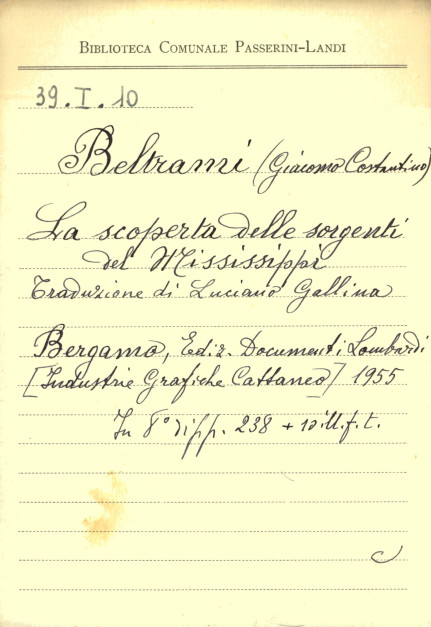 BIBLIOTECA COMUNALE PASSERINI-LANDI
39.I.10
Beltrami (Giacomo Costantino)
La scoperta delle sorgenti
del Mississippi
Traduzione di Luciano Gallina
Bergamo, Ediz. Documenti Lombardi
[Industrie Grafiche Cattaneo] 1955
In 8° di pp. 238 + 10 ill. f. t.
C